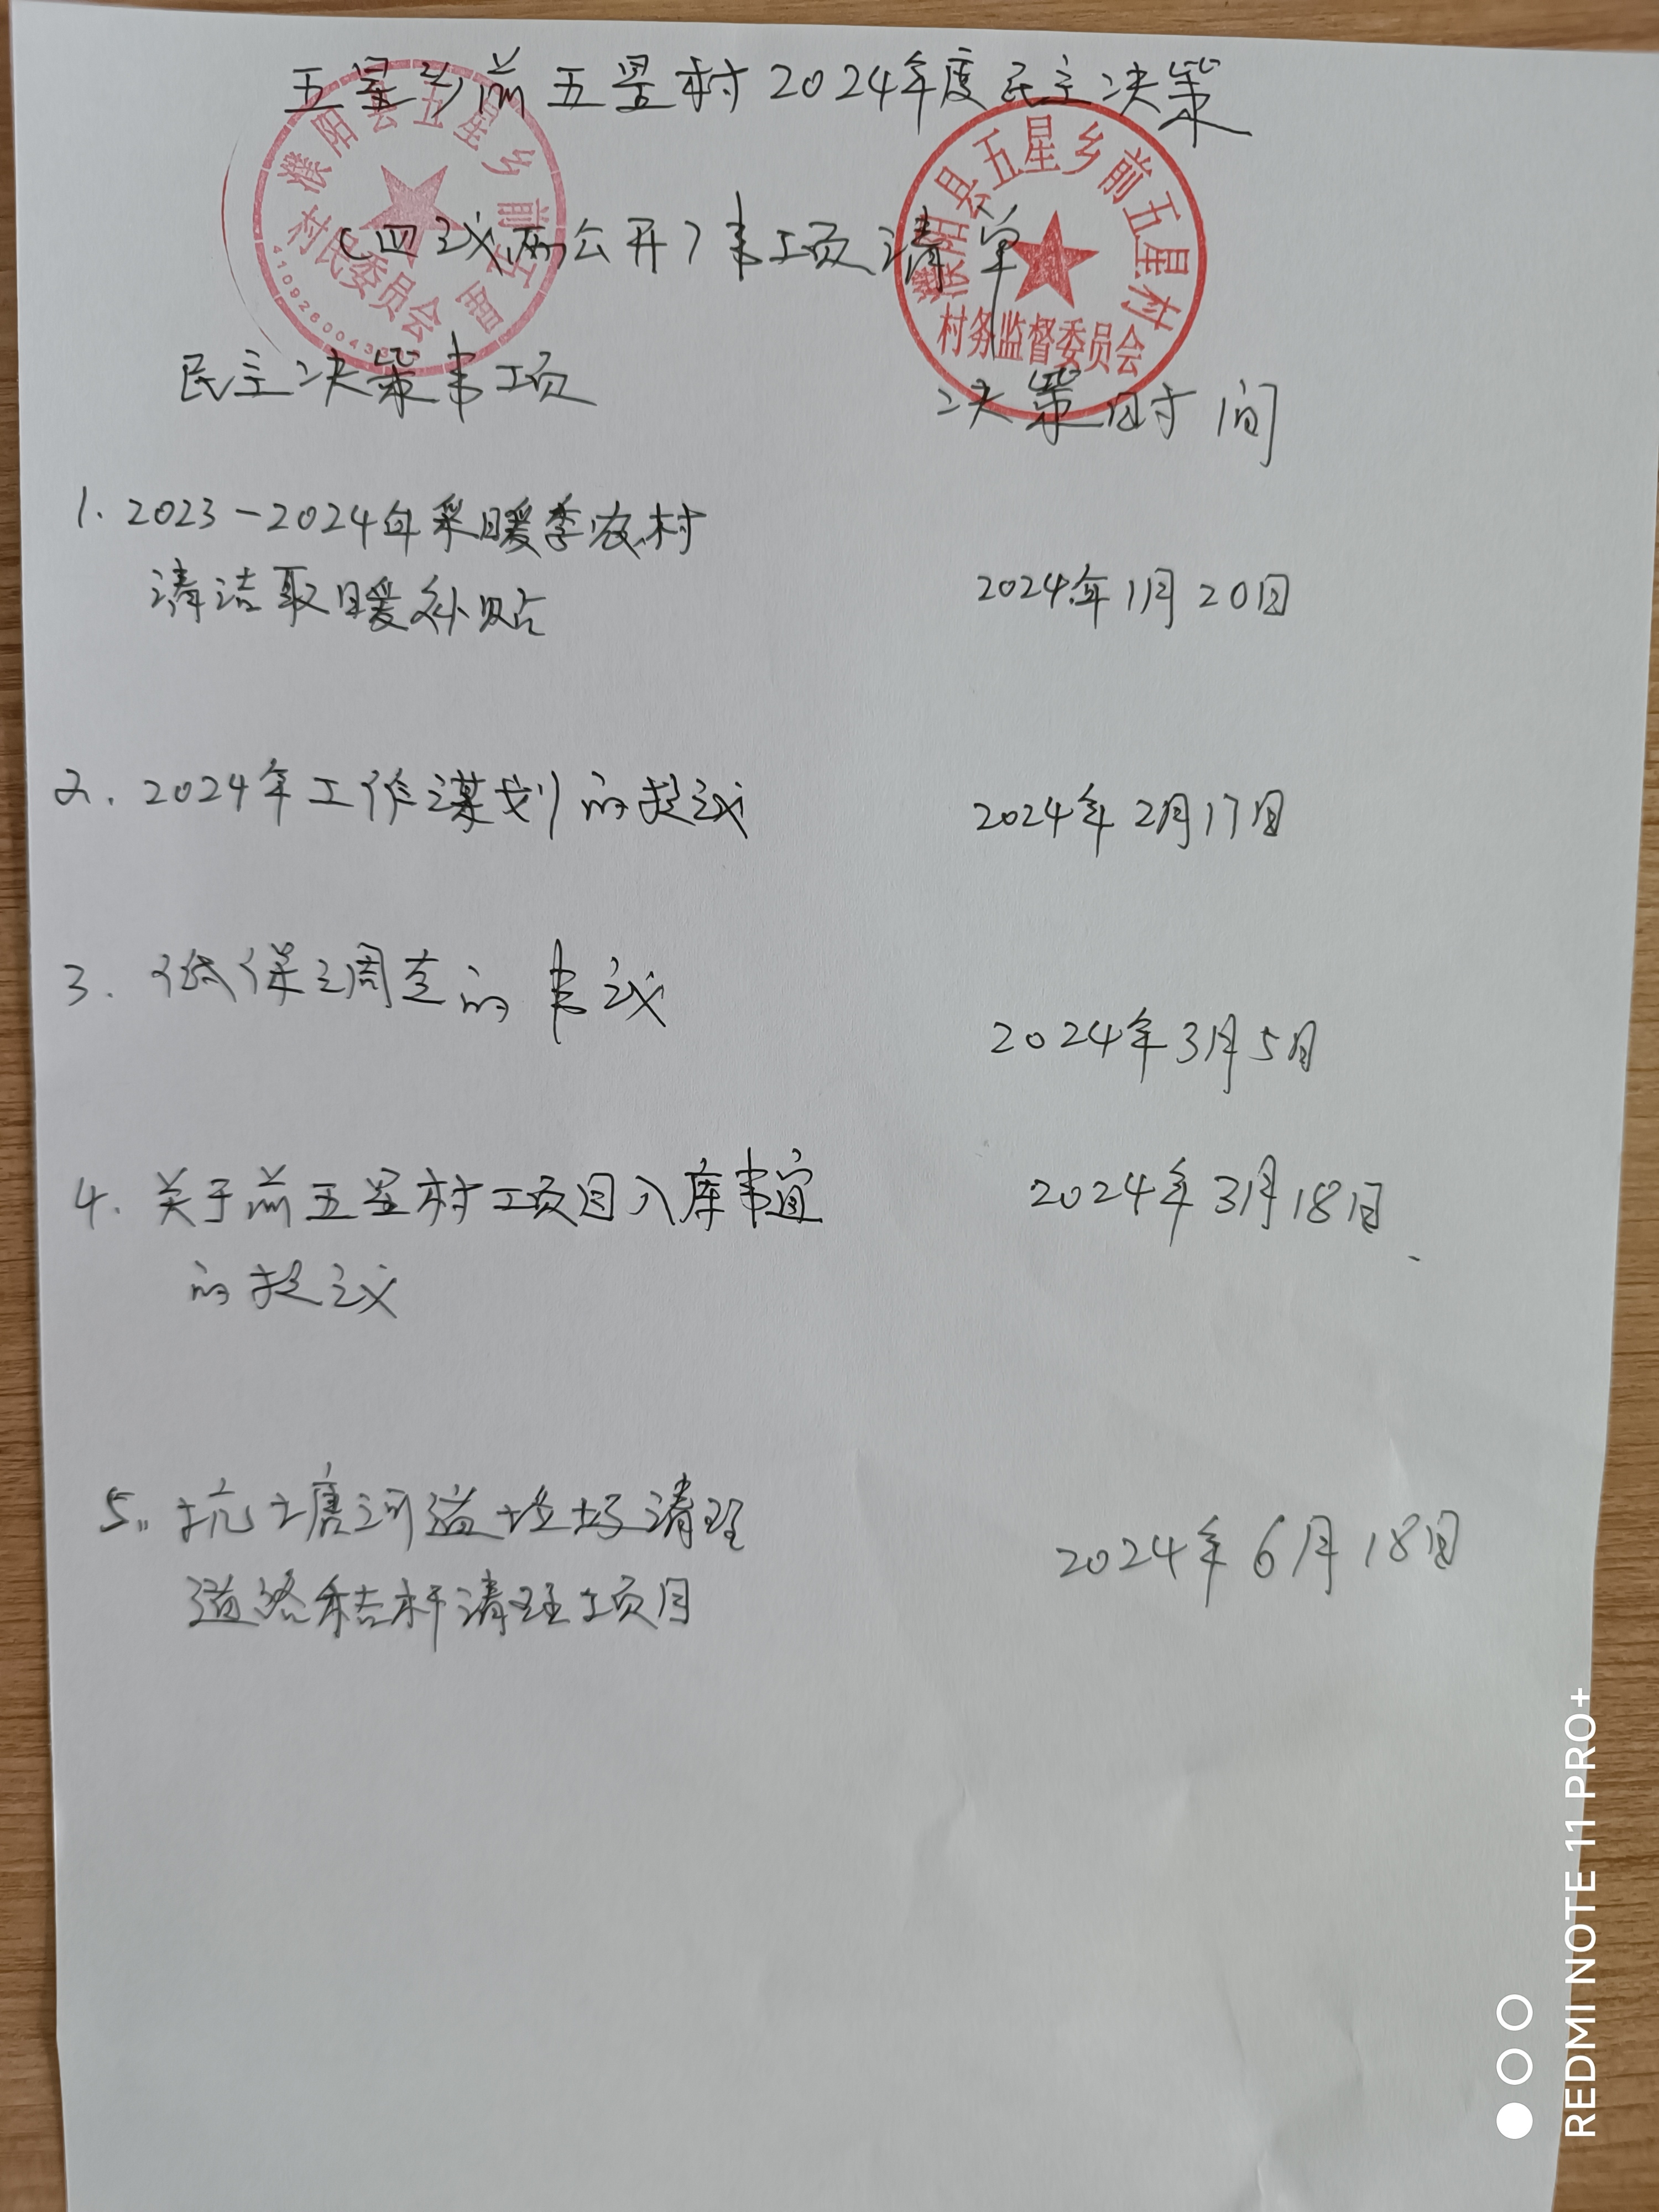 五星乡前五星村2024年度民主决策
(四议两公开)事项清单
濮阳县五星乡前五星
村民委员会
濮阳县五星乡前五星村
村务监督委员会
民主决策事项
决策时间
1. 2023-2024年采暖季农村
清洁取暖补贴
2024年1月20日
2. 2024年工作谋划的提议
2024年2月17日
3. 低保调走的事议
2024年3月5日
4. 关于前五星村项目入库事宜
的提议
2024年3月18日
5. 坑塘河道垃圾清理
道路秸杆清理项目
2024年6月18日
REDMI NOTE 11 PRO+